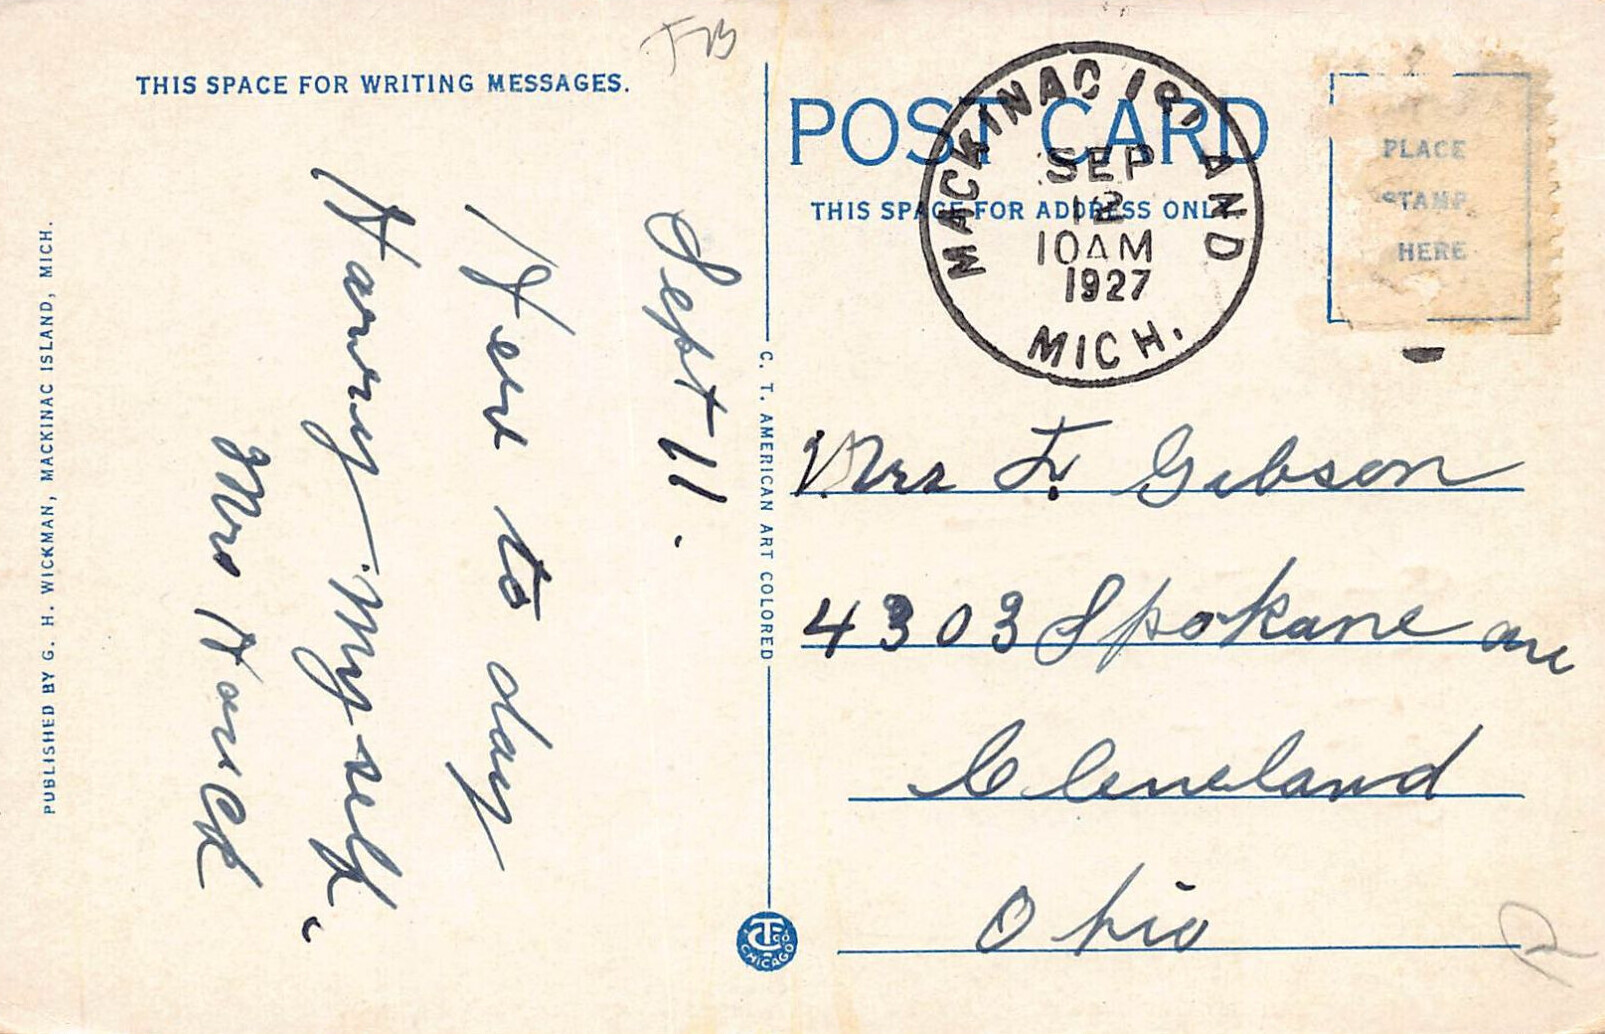 THIS SPACE FOR WRITING MESSAGES.
Sept 11.
Here to day
Having Myself.
Mrs Hauck
PUBLISHED BY G. H. WICKMAN, MACKINAC ISLAND, MICH.
C. T. AMERICAN ART COLORED
C.T. CO CHICAGO
POST CARD
THIS SPACE FOR ADDRESS ONLY.
MACKINAC ISLAND
SEP
12
10AM
1927
MICH.
PLACE
STAMP
HERE
Mrs F. Gibson
4303 Spokane ave
Cleveland
Ohio